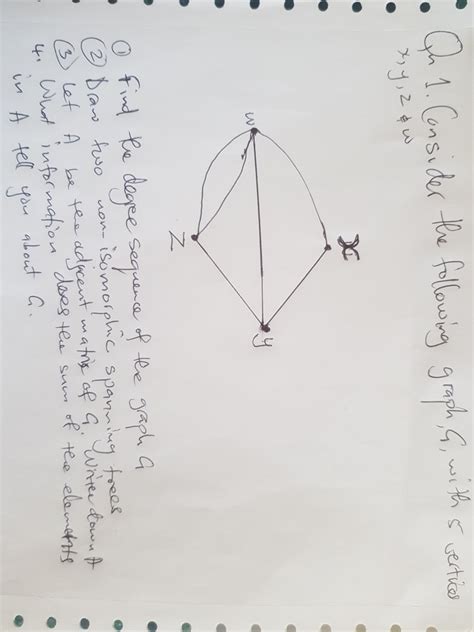 Qn 1. Consider the following graph, G, with 5 vertices
x, y, z & w
x
w
y
z
① Find the degree sequence of the graph G
② Draw two non-isomorphic spanning trees
③ Let A be the adjacent matrix of G. Write down A
4. What information does the sum of the elements
in A tell you about G.